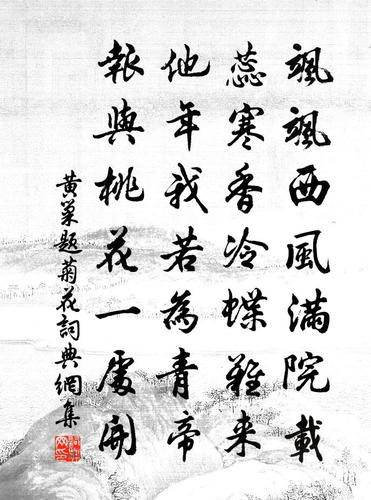 颯颯西風滿院載
蕊寒香冷蝶難来
他年我若為青帝
報與桃花一處開
黄巢題菊花詞典網集